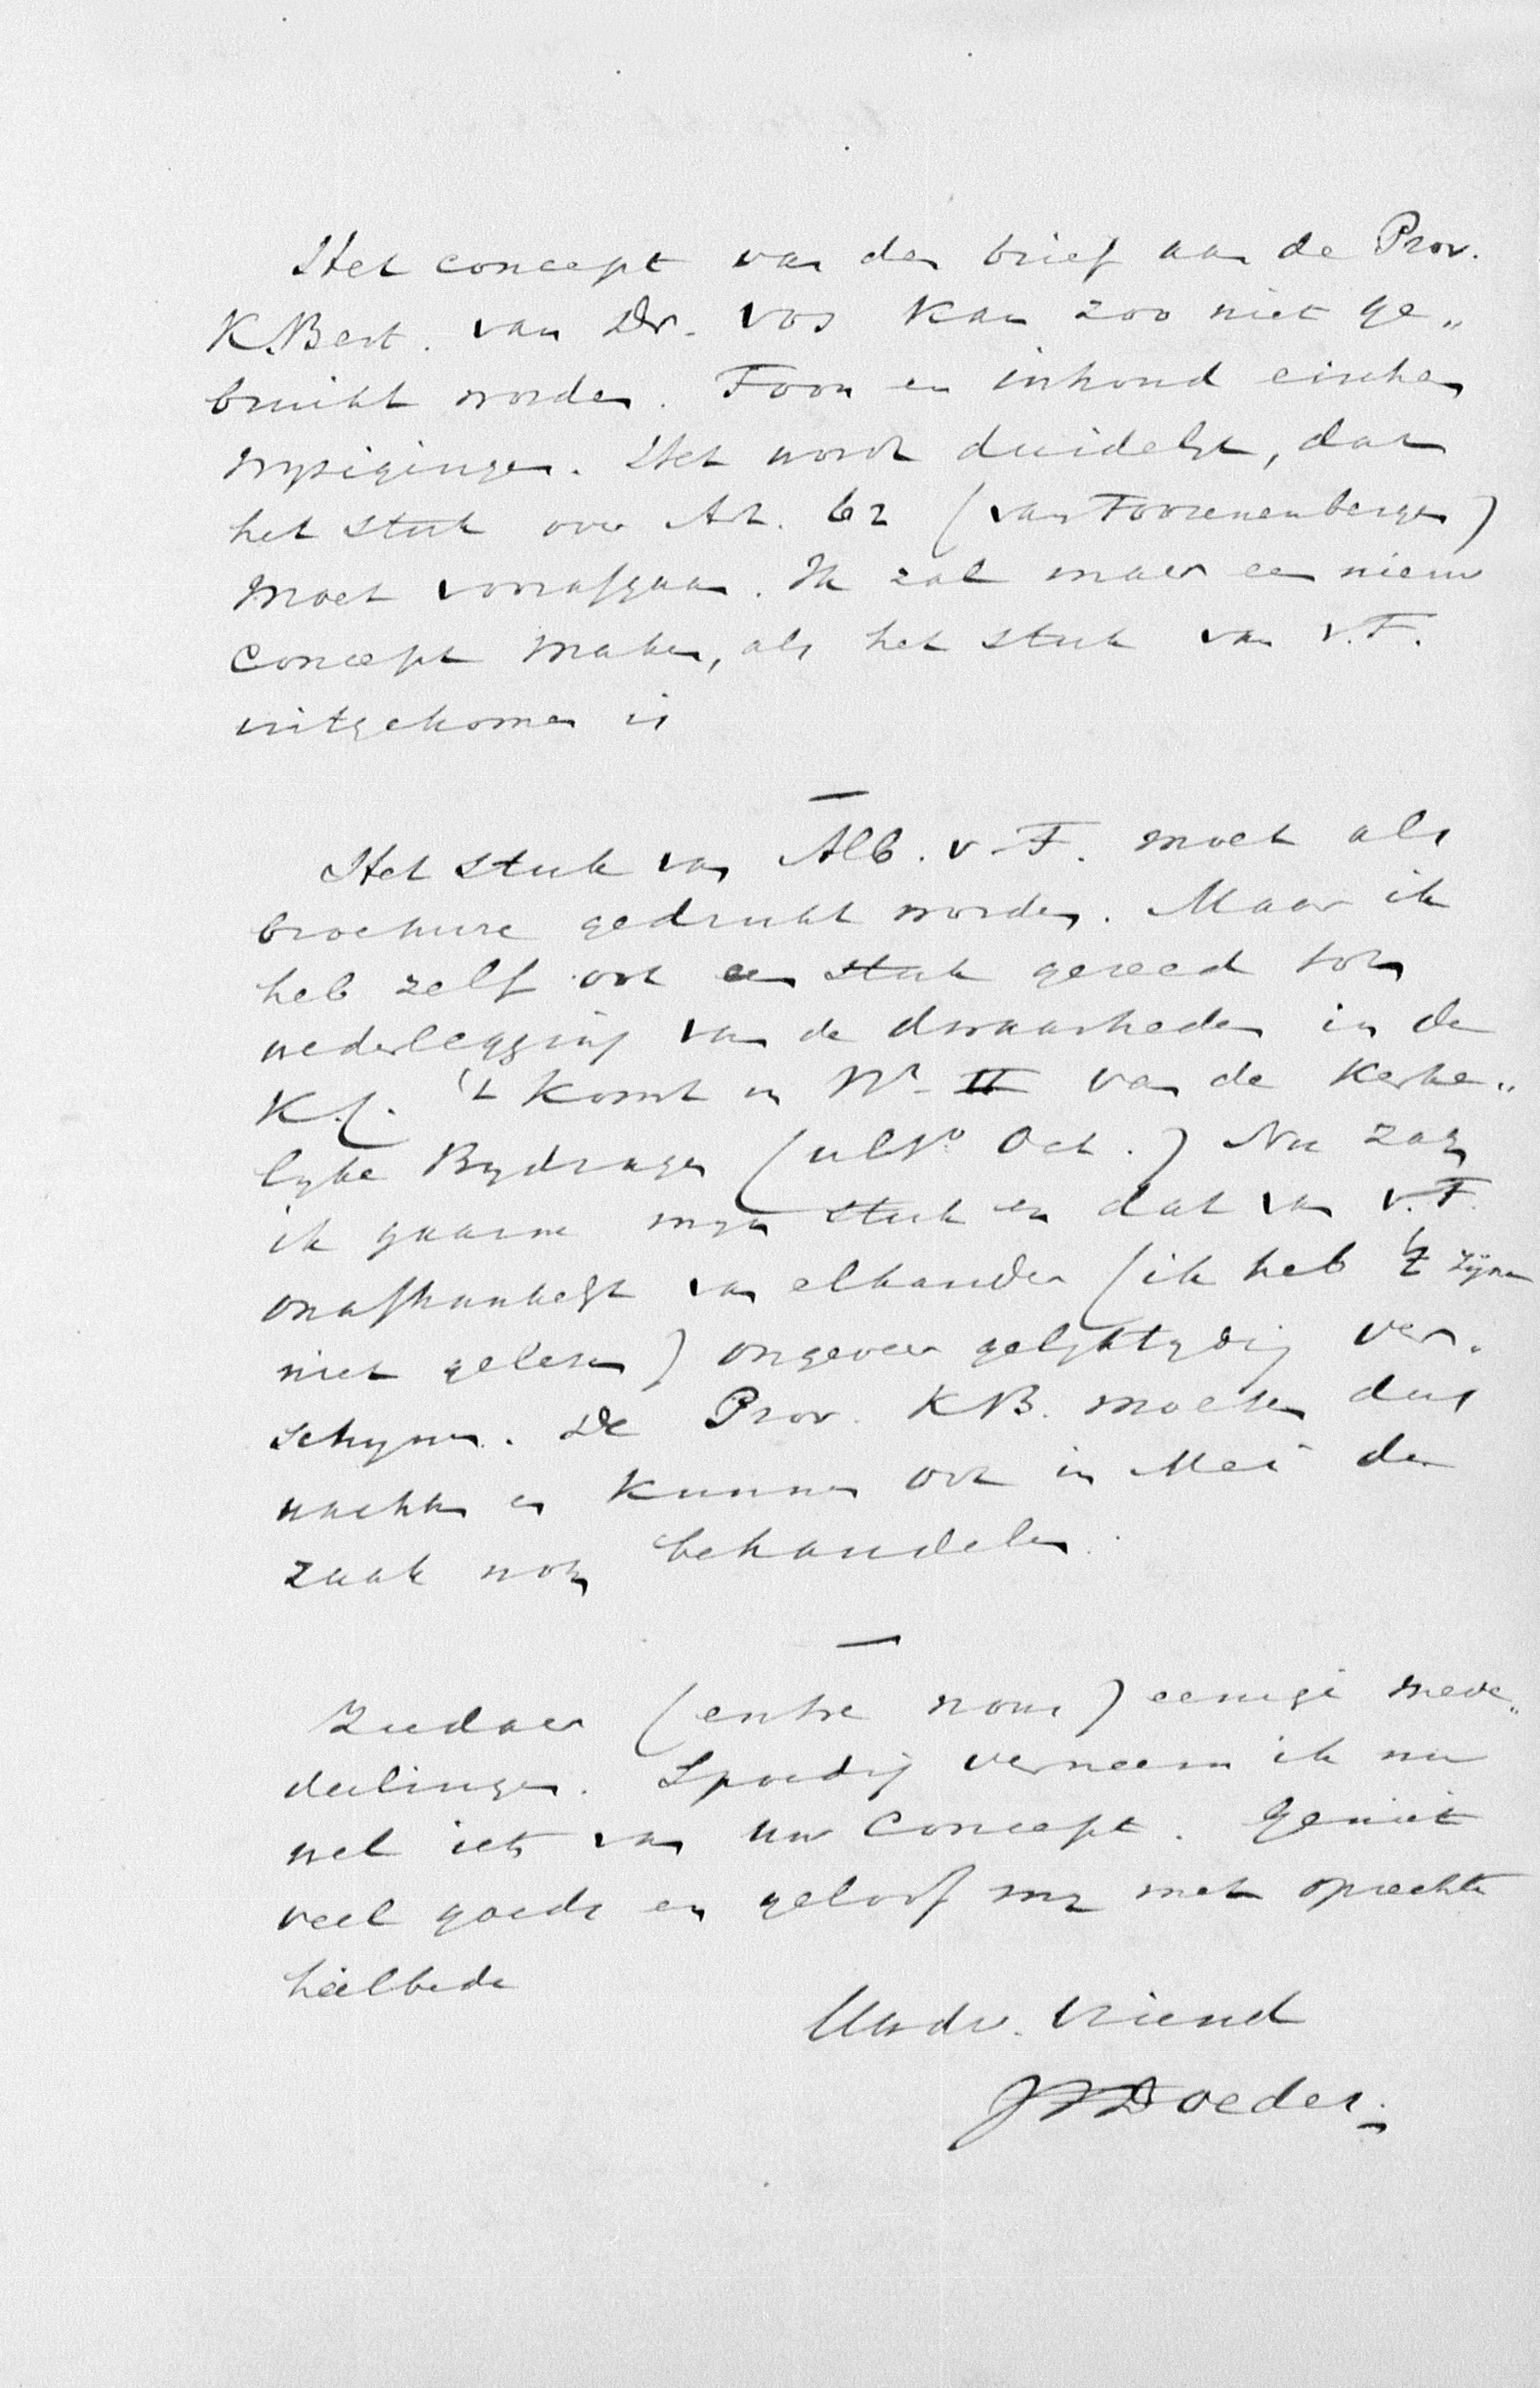 Het concept van den brief aan de Prov.
K. Best. van Dr. Vos kan zoo niet ge„
bruikt worden. Toon en inhoud eischen
wyzigingen. Het wordt duidelyk, dat
het stuk over Art. 62 (van Toorenenbergen)
moet voorafgaan. Ik zal maar een nieuw
concept maken, als het stuk van v. T.
uitgekomen is
—
Het stuk van Alb. v. T. moet als
brochure gedrukt worden. Maar ik
heb zelf ook een stuk gereed tot
wederlegging van de dwaasheden in de
K.C. 't Komt in Nr. II van de Kerke„
lyke Bydragen (ult° Oct.) Nu zag
ik gaarne myn stuk en dat van v. T.
onafhankelyk van elkander (ik heb 't zijne
niet gelezen) ongeveer gelyktydig ver„
schynen. De Prov. K B. moeten dus
wachten en kunnen ook in Mei de
zaak nog behandelen.
—
Ziedaar (entre nous) eenige mede„
deelingen. Spoedig verneem ik nu
wel iets van uw concept. Geniet
veel goeds en geloof my met oprechte
heilbede
Uw dw. Vriend
JJ Doedes.